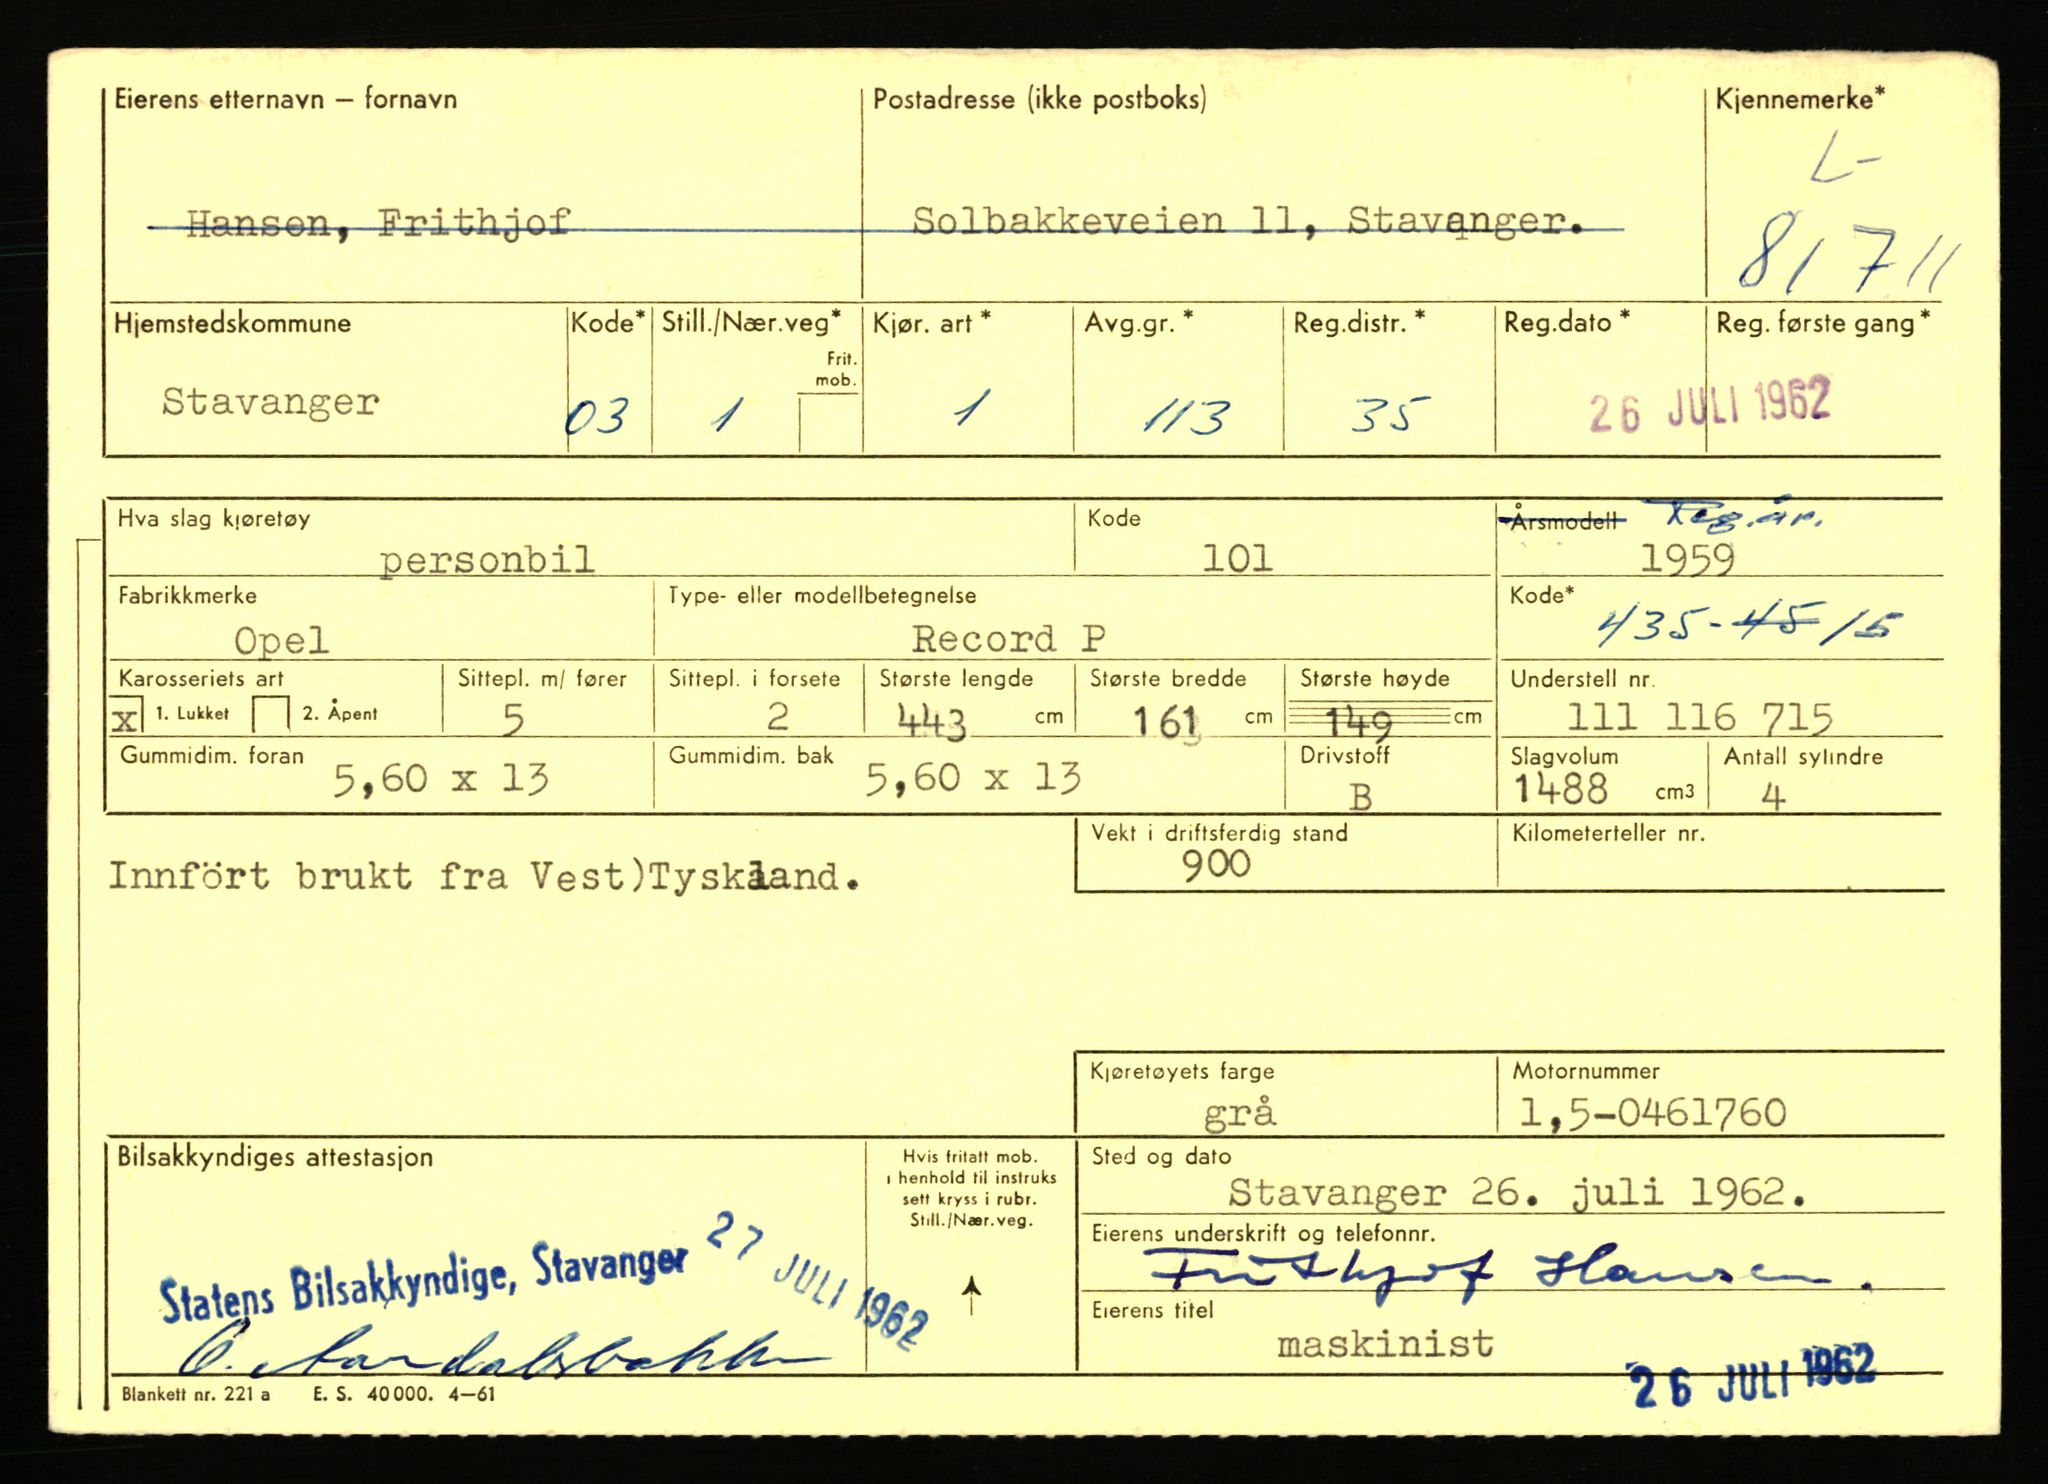 Eierens etternavn – fornavn Postadresse (ikke postboks) Kjennemerke*
L-
Hansen, Frithjof Solbakkeveien 11, Stavanger.
81711
Hjemstedskommune Kode* Still./Nær.veg* Kjør. art* Avg.gr.* Reg.distr.* Reg.dato* Reg. første gang*
Frit.
mob.
Stavanger 03 1 1 113 35 26 JULI 1962
Hva slag kjøretøy Kode Årsmodell Reg.år.
personbil 101 1959
Fabrikkmerke Type- eller modellbetegnelse Kode*
Opel Record P 435-45 15
Karosseriets art Sittepl. m/ fører Sittepl. i forsete Største lengde Største bredde Største høyde Understell nr.
x 1. Lukket 2. Åpent 5 2 443 cm 161 cm 149 cm 111 116 715
Gummidim. foran Gummidim. bak Drivstoff Slagvolum Antall sylindre
5,60 x 13 5,60 x 13 B 1488 cm3 4
Vekt i driftsferdig stand Kilometerteller nr.
900
Innfört brukt fra Vest)Tyskland.
Kjøretøyets farge Motornummer
grå 1,5-0461760
Bilsakkyndiges attestasjon Hvis fritatt mob. Sted og dato
i henhold til instruks
sett kryss i rubr.
Still./Nær.veg.
Stavanger 26. juli 1962.
Eierens underskrift og telefonnr.
Statens Bilsakkyndige, Stavanger 27 JULI 1962
Frithjof Hansen.
Eierens titel
maskinist
26 JULI 1962
Blankett nr. 221 a E. S. 40 000. 4–61